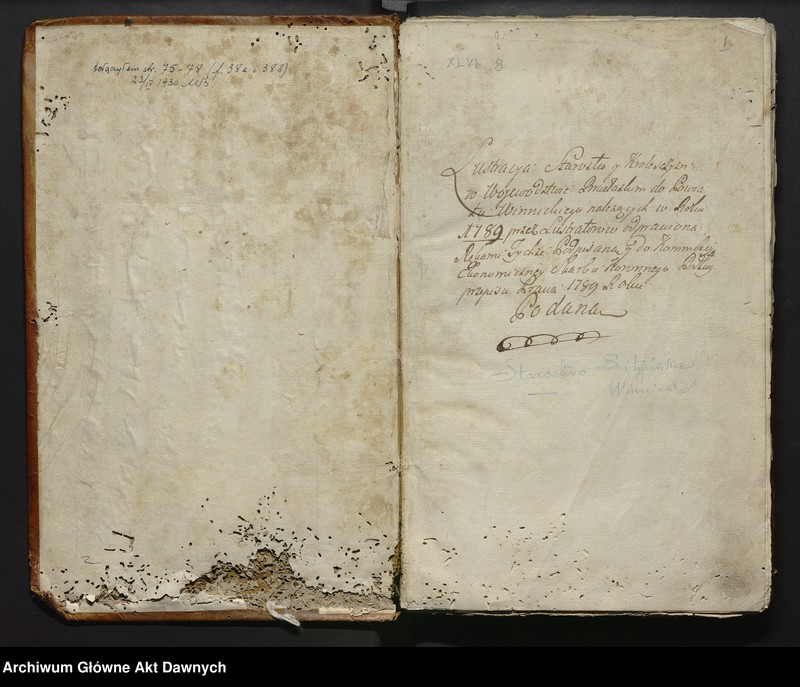 str. 75-78 (f. 38a i 38b)
1930
1
XLVI 8
Lustracya Starostw y Krolewszczyzn
w Woiewodztwie Bracławskim do Powia
tu Winnickiego należących w Roku
1789 przez Lustratorow odprawiona
Rękami Tychże Podpisana y do Kommissyi
Ekonomiczney Skarbu Koronnego Podług
przepisu Prawa 1789 Roku
Podana
Starostwo
Archiwum Główne Akt Dawnych